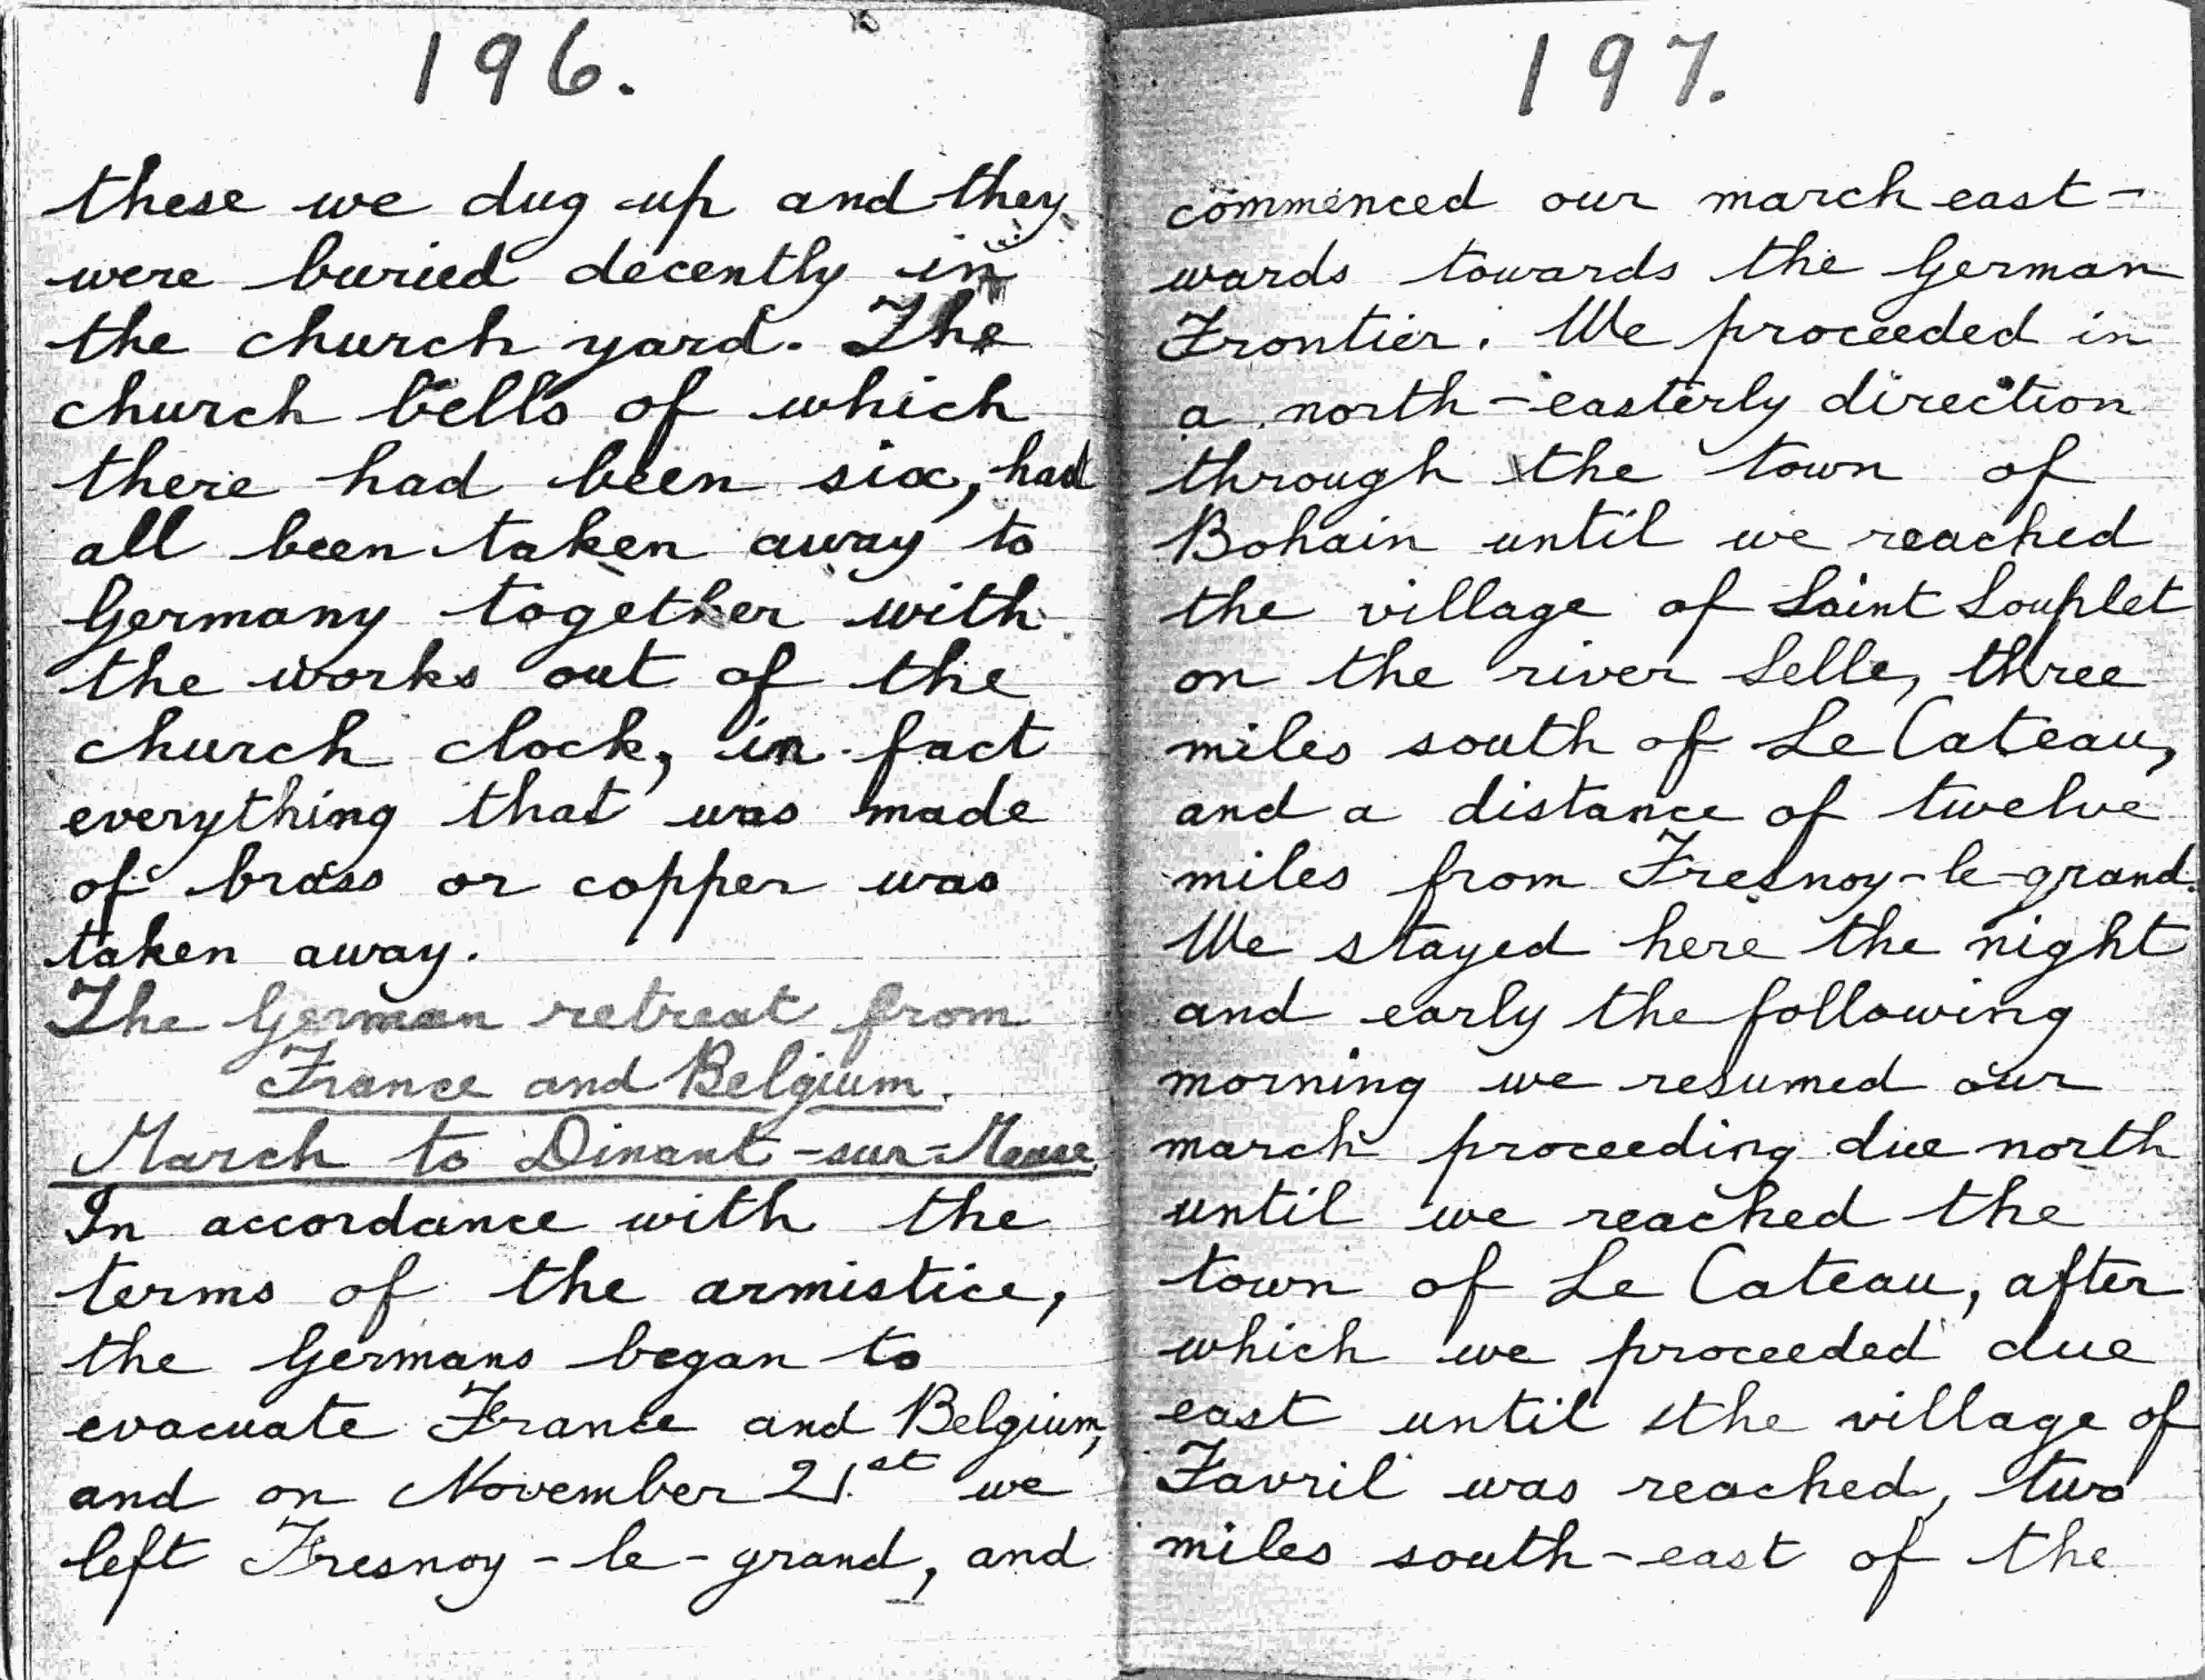 196.
these we dug up and they
were buried decently in
the church yard. The
church bells of which
there had been six, had
all been taken away to
Germany together with
the works out of the
church clock, in fact
everything that was made
of brass or copper was
taken away.
The German retreat from
France and Belgium.
March to Dinant-sur-Meuse.
In accordance with the
terms of the armistice,
the Germans began to
evacuate France and Belgium,
and on November 21st we
left Fresnoy-le-grand, and
197.
commenced our march east-
wards towards the German
Frontier. We proceeded in
a north-easterly direction
through the town of
Bohain until we reached
the village of Saint Souplet
on the river Selle, three
miles south of Le Cateau,
and a distance of twelve
miles from Fresnoy-le-grand.
We stayed here the night
and early the following
morning we resumed our
march proceeding due north
until we reached the
town of Le Cateau, after
which we proceeded due
east until the village of
Favril was reached, two
miles south-east of the